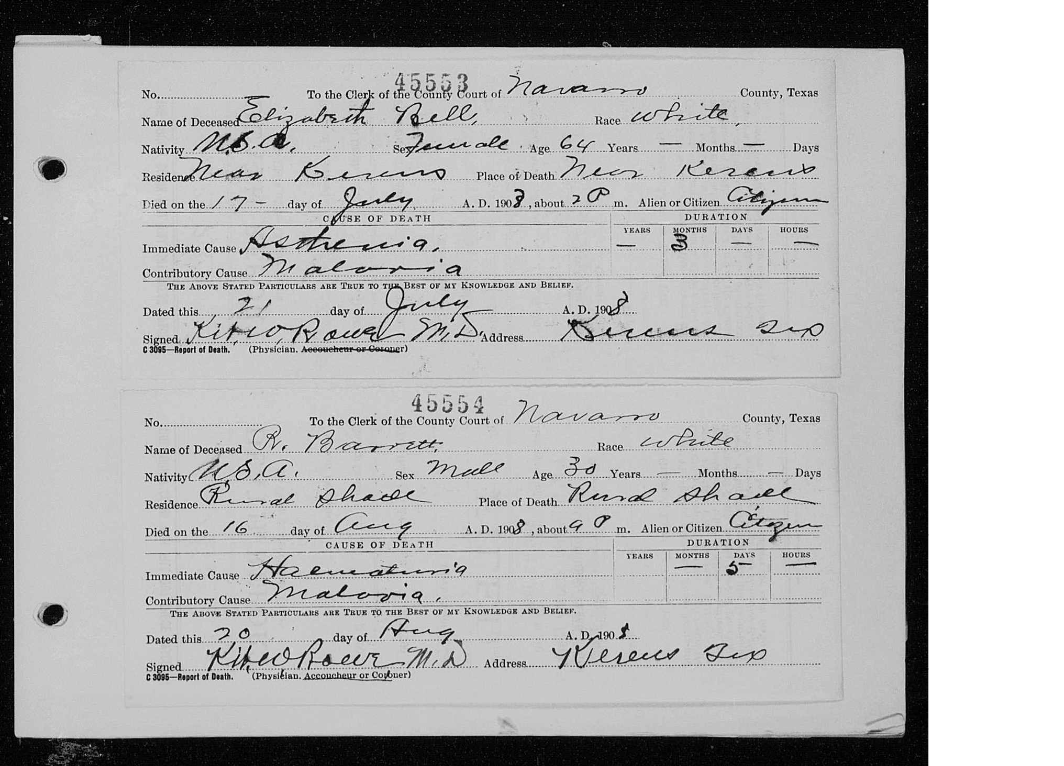 45553
No. To the Clerk of the County Court of Navarro County, Texas
Name of Deceased Elizabeth Bell, Race White,
Nativity U.S.A. Sex Female Age 64 Years — Months — Days
Residence Near Kerens Place of Death Near Kerens
Died on the 17 - day of July A. D. 1908, about 2 P m. Alien or Citizen Citizen
CAUSE OF DEATH DURATION
YEARS MONTHS DAYS HOURS
Immediate Cause Asthenia. — 3 — —
Contributory Cause Malaria
THE ABOVE STATED PARTICULARS ARE TRUE TO THE BEST OF MY KNOWLEDGE AND BELIEF.
Dated this 21 day of July A. D. 1908
Signed Kit W. Rowe M.D. Address Kerens Tex
C 3095—Report of Death. (Physician. Accoucheur or Coroner)
45554
No. To the Clerk of the County Court of Navarro County, Texas
Name of Deceased R. Barrett. Race White
Nativity U.S.A. Sex Male Age 30 Years — Months — Days
Residence Rural Shade Place of Death Rural Shade
Died on the 16 day of Aug A. D. 1908, about 9 P m. Alien or Citizen Citizen
CAUSE OF DEATH DURATION
YEARS MONTHS DAYS HOURS
Immediate Cause Haematuria — 5 —
Contributory Cause Malaria.
THE ABOVE STATED PARTICULARS ARE TRUE TO THE BEST OF MY KNOWLEDGE AND BELIEF.
Dated this 20 day of Aug A. D. 1908
Signed Kit W Rowe M.D Address Kerens Tex
C 3095—Report of Death. (Physician. Accoucheur or Coroner)